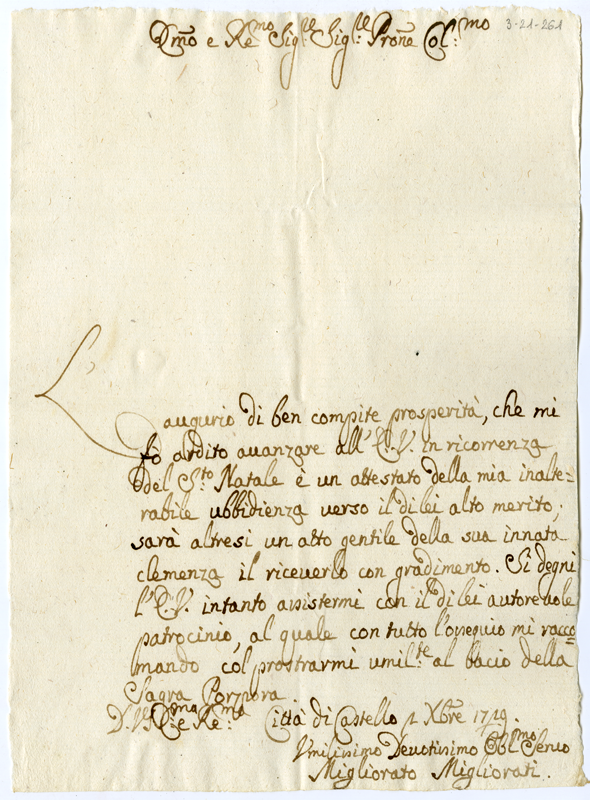 Em̃o e Re.mo Sig.re Sig.re Prone Col.mo
3-21-261
L'augurio di ben compite prosperità, che mi
fò ardito auanzare all'E.V. in ricorrenza
del S.to Natale è un attestato della mia inalte=
rabile ubbidienza verso il di lei alto merito;
sarà altresi un atto gentile della sua innata
clemenza il riceuerlo con gradimento. Si degni
l'E.V. intanto assistermi con il di lei autoreuole
patrocinio, al quale con tutto l'ossequio mi racco=
mando col prostrarmi umil.te al bacio della
Sagra Porpora
D. V. E.ma e Re.ma Città di Castello Xbre 1719.
Vmilissimo Deuotissimo Obl.mo Seruo
Migliorato Migliorati.